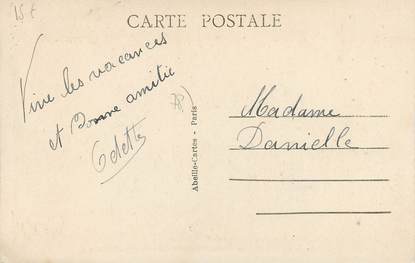 15 €
CARTE POSTALE
Vive les vacances
et Bonne amitié
Odette
78
Abeille-Cartes - Paris
Madame
Danielle